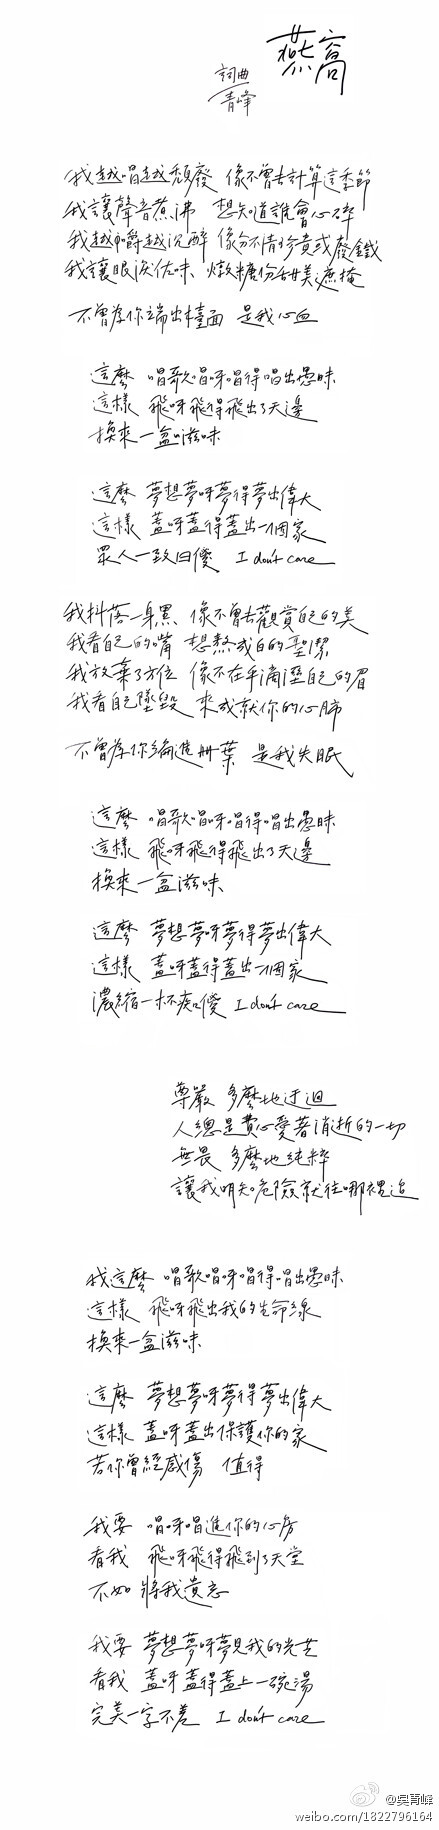 燕窩
詞曲
青峰
我越唱越頹廢 像不曾去計算這季節
我讓聲音煮沸 想知道誰會心碎
我越嚼越沉醉 像分不清珍貴或廢鐵
我讓眼淚佐味、燉糖份甜美遮掩
不曾為你端出檯面 是我心血
這麼 唱歌唱呀唱得唱出愚昧
這樣 飛呀飛得飛出了天邊
換來一盆滋味
這麼 夢想夢呀夢得夢出偉大
這樣 蓋呀蓋得蓋出一個家
眾人一致曰傻 I don't care
我抖落一身黑 像不曾去觀賞自己的美
我看自己的嘴 想熬成白的聖潔
我放棄了方位 像不在乎滴溼自己的眉
我看自己墜毀 來成就你的心肺
不曾為你編進冊葉 是我失眠
這麼 唱歌唱呀唱得唱出愚昧
這樣 飛呀飛得飛出了天邊
換來一盆滋味
這麼 夢想夢呀夢得夢出偉大
這樣 蓋呀蓋得蓋出一個家
濃縮一杯痴傻 I don't care
尊嚴 多麼地迂迴
人總是費心愛著消逝的一切
無畏 多麼地純粹
讓我明知危險就往哪裡追
我這麼 唱歌唱呀唱得唱出愚昧
這樣 飛呀飛出我的生命線
換來一盆滋味
這麼 夢想夢呀夢得夢出偉大
這樣 蓋呀蓋出保護你的家
若你曾經感傷 值得
我要 唱呀唱進你的心房
看我 飛呀飛得飛到了天堂
不如將我遺忘
我要 夢想夢呀夢見我的光芒
看我 蓋呀蓋得蓋上一碗湯
完美一字不差 I don't care
@吳青峰
weibo.com/1822796164